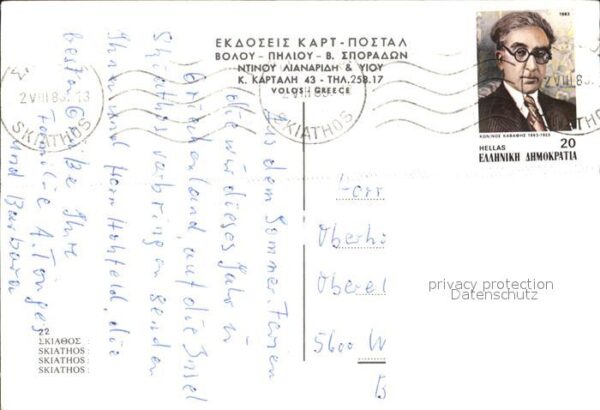 ΕΚΔΟΣΕΙΣ ΚΑΡΤ - ΠΟΣΤΑΛ
ΒΟΛΟΥ - ΠΗΛΙΟΥ - Β. ΣΠΟΡΑΔΩΝ
ΝΤΙΝΟΥ ΛΙΑΝΑΡΙΔΗ & ΥΙΟΥ
Κ. ΚΑΡΤΑΛΗ 43 - ΤΗΛ. 258.17
VOLOS - GREECE
1983
ΚΩΝ/ΝΟΣ ΚΑΒΑΦΗΣ 1863-1933
HELLAS 20
ΕΛΛΗΝΙΚΗ ΔΗΜΟΚΡΑΤΙΑ
2 VIII 83. 13
SKIATHOS
2 VIII 83
SKIATHOS
Aus dem Sommer-Ferien
die wir dieses Jahr in
Griechenland, auf die Insel
Skiathos verbringen senden
Ihnen und Herrn Hohfeld, die
besten Grüße Ihre
Familie A. Tönges
und Barbara
Herr
Oberhi
Oberel
5600 W
B
privacy protection
Datenschutz
22
ΣΚΙΑΘΟΣ :
SKIATHOS :
SKIATHOS :
SKIATHOS :